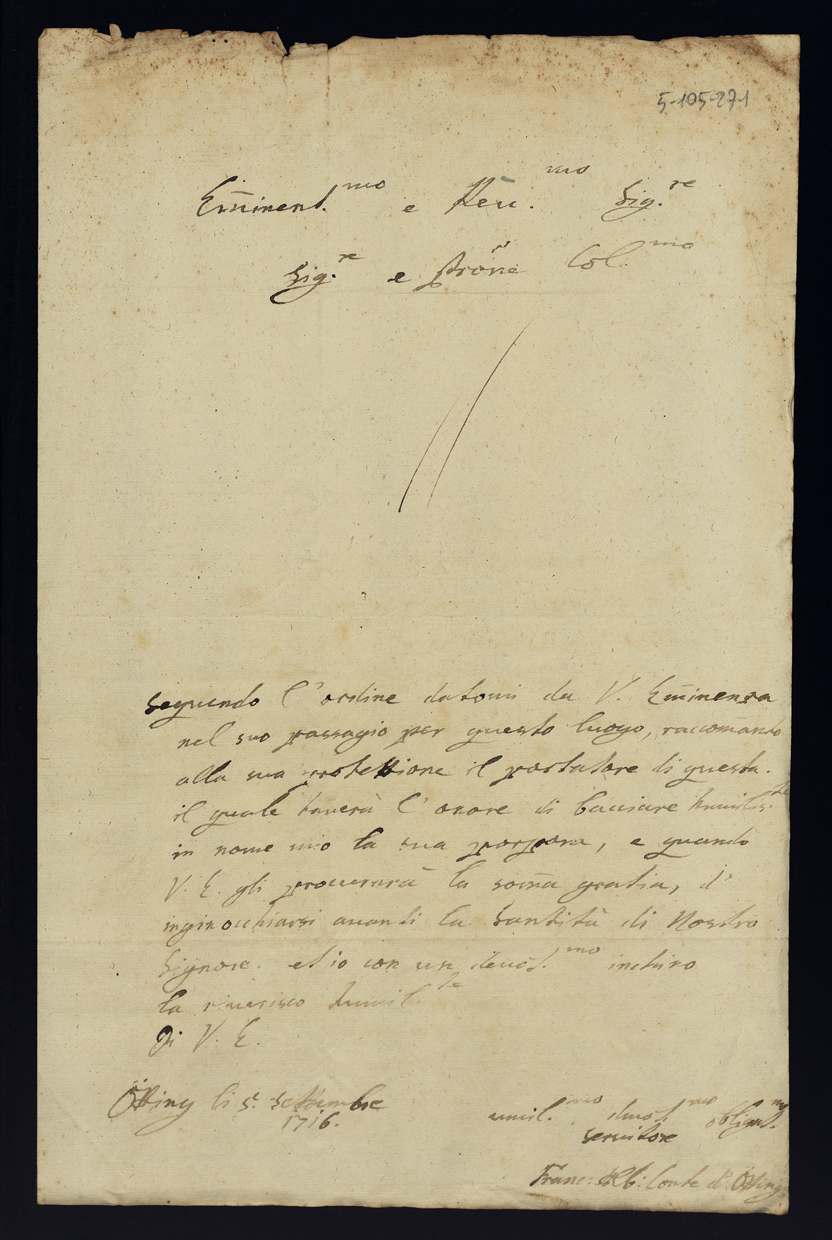 5-105-271
Em̃inent.mo e Reu.mo Sig.re
Sig.re e Prõne Col.mo
seguendo l'ordine datomi da V. Em̃inenza
nel suo passagio per questo luogo, raccom̃ando
alla sua protettione il portatore di questa.
il quale hauerà l'onore di bacciare humilis:te
in nome mio la sua porpora, e quando
V. E. gli procurarà la som̃a gratia, d'
inginocchiarsi auanti la Santità di Nostro
Signore. et io con un deuot.mo inchino
la riuerisco humil.te
Di V. E.
Ötting li 5. Settembre
1716.
umil.mo deuot.mo obligat.mo
seruitore
Franc: Alb: Conte d'Ötting